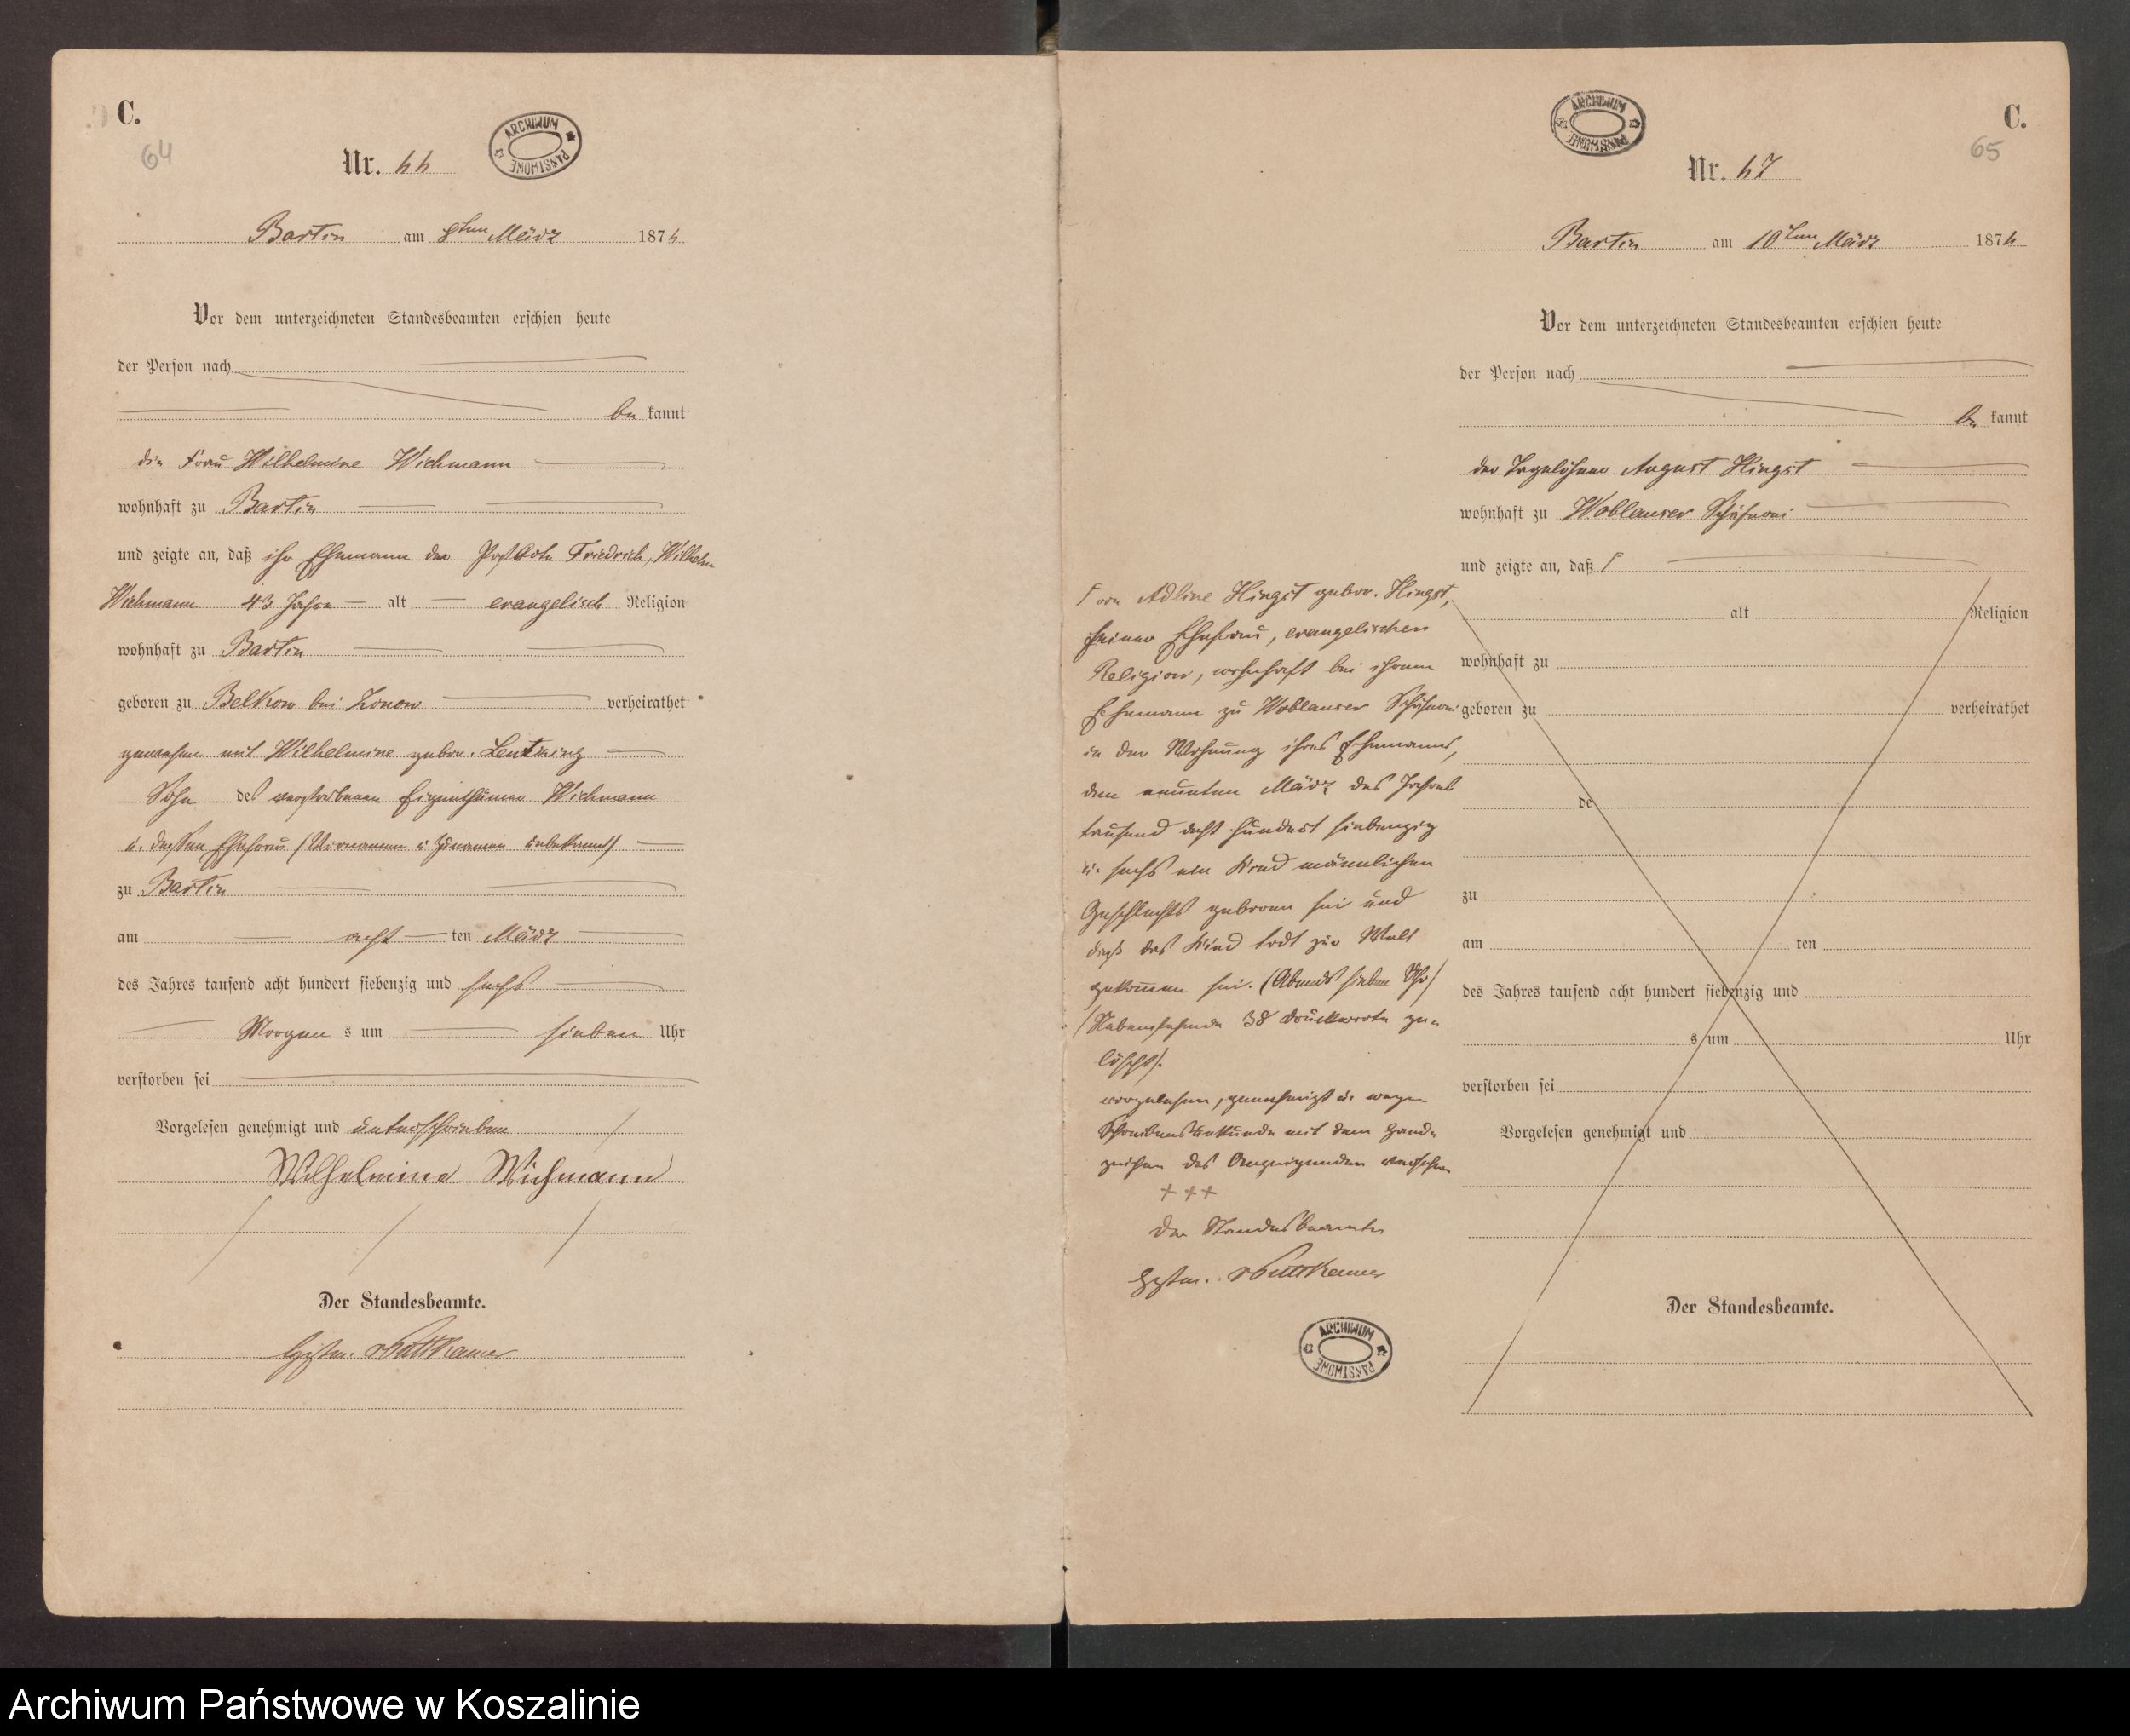 C.
64
ARCHIWUM PAŃSTWOWE
Nr. 66
Bartin am 8ten März 1876
Vor dem unterzeichneten Standesbeamten erschien heute
der Person nach
be kannt
die Frau Wilhelmine Wichmann
wohnhaft zu Bartin
und zeigte an, daß ihr Ehemann der Postbote Friedrich, Wilhelm
Wichmann 43 Jahre alt evangelisch Religion
wohnhaft zu Bartin
geboren zu Belkow bei verheirathet
gewesen mit Wilhelmine gebor.
Sohn des verstorbenen Eigenthümer Wichmann
u. dessen Ehefrau (Vornamen u Zunamen unbekannt)
zu Bartin
am acht ten März
des Jahres tausend acht hundert siebenzig und sechs
Morgen s um sieben Uhr
verstorben sei
Vorgelesen genehmigt und unterschrieben
Wilhelmine Wichmann
Der Standesbeamte.
v Puttkamer
C.
65
ARCHIWUM PAŃSTWOWE
Nr. 67
Bartin am 10ten März 1876
Vor dem unterzeichneten Standesbeamten erschien heute
der Person nach
be kannt
der Tagelöhner August Hingst
wohnhaft zu Woblanser Schäferei
und zeigte an, daß Γ
alt Religion
wohnhaft zu
geboren zu verheirathet
de
zu
am ten
des Jahres tausend acht hundert siebenzig und
s um Uhr
verstorben sei
Vorgelesen genehmigt und
Der Standesbeamte.
Γ von Adline Hingst gebor. Hingst,
seiner Ehefrau, evangelischen
Religion, wohnhaft bei ihrem
Ehemann zu Woblanser Schäferei
in der Wohnung ihres Ehemanns,
den neunten März des Jahres
tausend acht hundert siebenzig
u. sechs ein Kind männlichen
Geschlechts geboren sei und
daß das Kind todt zur Welt
gekommen sei. (Abends sieben Uhr)
(Nebenstehende 38 Druckworte ge-
löscht).
vorgelesen, genehmigt u. wegen
Schreibensunkunde mit dem Hand-
zeichen des Anzeigenden versehen
+++
Der Standesbeamte
v Puttkamer
ARCHIWUM PAŃSTWOWE
Archiwum Państwowe w Koszalinie